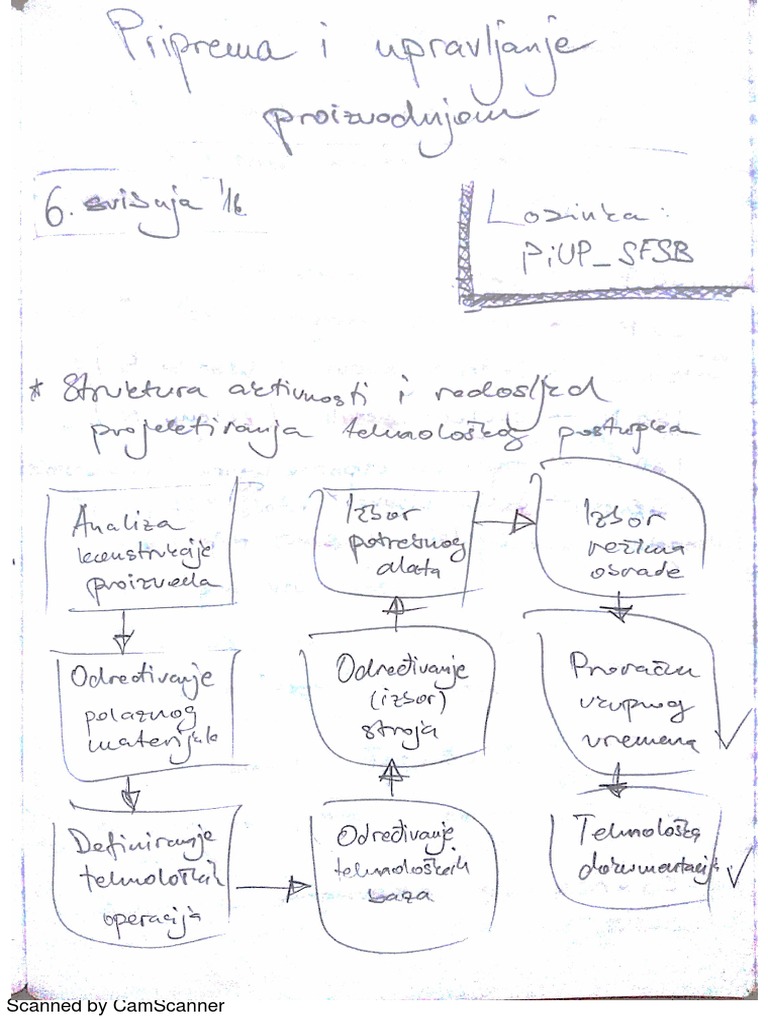 Priprema i upravljanje
proizvodnjom
6. svibnja '16
Lozinka:
PiUP_SFSB
* Struktura aktivnosti i redoslijed
projektiranja tehnološkog postupka
Analiza
konstrukcije
proizvoda
Određivanje
polaznog
materijala
Definiranje
tehnoloških
operacija
Određivanje
tehnoloških
baza
Određivanje
(izbor)
stroja
Izbor
potrebnog
alata
Izbor
režima
obrade
Proračun
ukupnog
vremena
Tehnološka
dokumentacija
Scanned by CamScanner